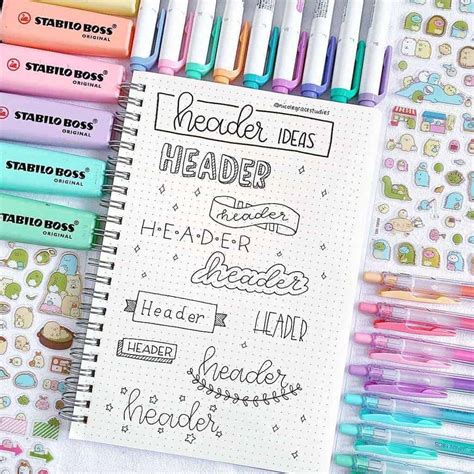 STABILO BOSS
ORIGINAL
STABILO BOSS
ORIGINAL
STABILO BOSS
ORIGINAL
STABILO BOSS
ORIGINAL
STABILO BOSS
ORIGINAL
STABILO BOSS
ORIGINAL
@nicolegracestudies
header IDEAS
HEADER
header
H·E·A·D·E·R
header
Header
HEADER
HEADER
header
header